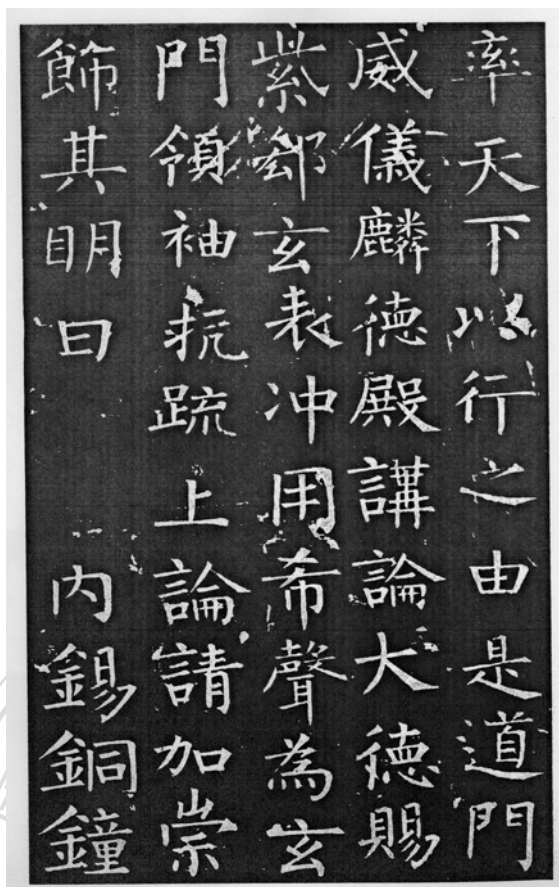 率天下以行之由是道門
威儀麟徳殿講論大徳賜
紫郄玄表冲用希聲為玄
門領袖抗疏上論請加崇
飾其眀日 内錫銅鐘